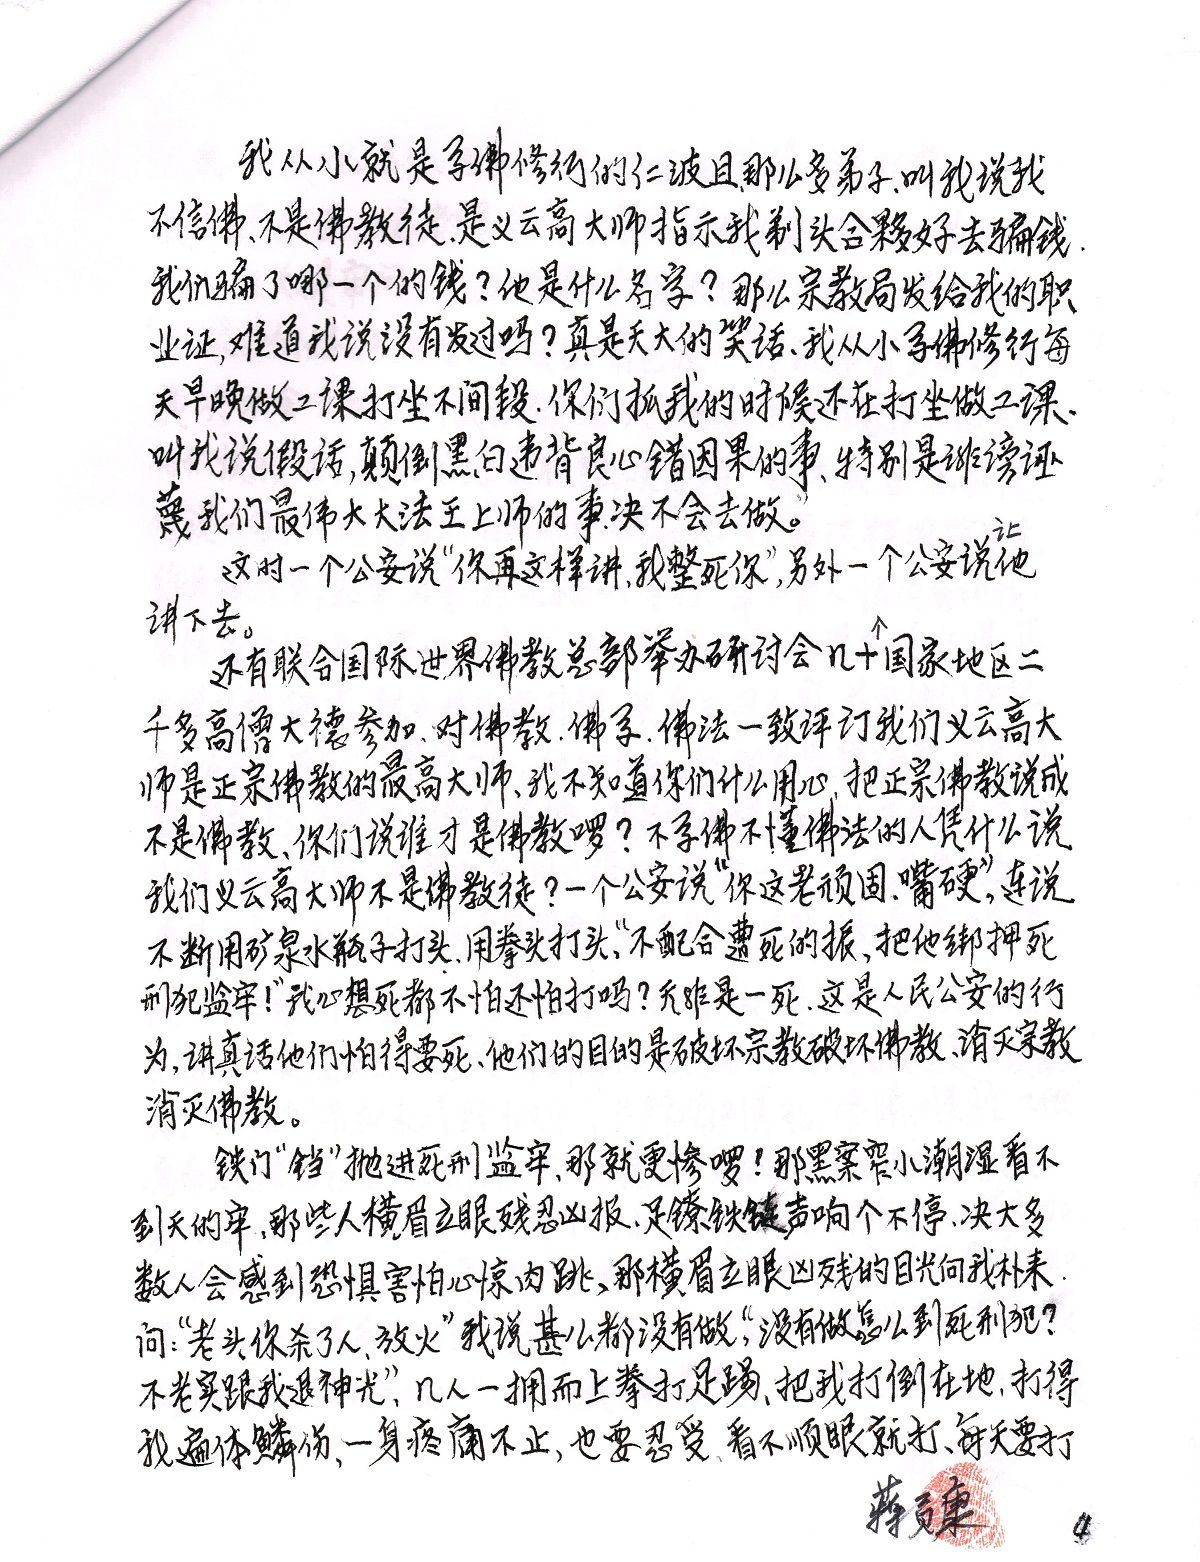 我从小就是学佛修行的仁波且、那么多弟子、叫我说我
不信佛、不是佛教徒、是义云高大师指示我剃头合夥好去骗钱.
我们骗了哪一个的钱？他是什么名字？那么宗教局发给我的职
业证,难道我说没有发过吗？真是天大的笑话、我从小学佛修行每
天早晚做工课打坐不间段.你们抓我的时候还在打坐做工课、
叫我说假话,颠倒黑白违背良心错因果的事、特别是诽谤诬
蔑我们最伟大大法王上师的事.决不会去做。
这时一个公安说"你再这样讲、我整死你",另外一个公安说让他
讲下去。
还有联合国际世界佛教总部举办研讨会几十国家地区二
千多高僧大德参加.对佛教.佛学.佛法一致评订我们义云高大
师是正宗佛教的最高大师、我不知道你们什么用心,把正宗佛教说成
不是佛教、你们说谁才是佛教啰？不学佛不懂佛法的人凭什么说
我们义云高大师不是佛教徒？一个公安说"你这老顽固.嘴硬",连说
不断用矿泉水瓶子打头.用拳头打头,"不配合遭死的振、把他绑押死
刑犯监牢！"我心想死都不怕还怕打吗？无非是一死.这是人民公安的行
为,讲真话他们怕得要死、他们的目的是破坏宗教破坏佛教、消灭宗教
消灭佛教。
铁门"铛"抛进死刑监牢、那就更惨啰！那黑窄小潮湿看不
到天的牢、那些人横眉立眼残忍凶报.足镣铁链声响个不停.决大多
数人会感到恐惧害怕心惊肉跳、那横眉立眼凶残的目光向我朴来.
问:"老头你杀了人、放火"我说甚么都没有做,"没有做怎么到死刑犯?
不老实跟我退神光",几人一拥而上拳打足踢、把我打倒在地.打得
我遍体鳞伤、一身疼痛不止,也要忍受.看不顺眼就打、每天要打
蒋贡康
4